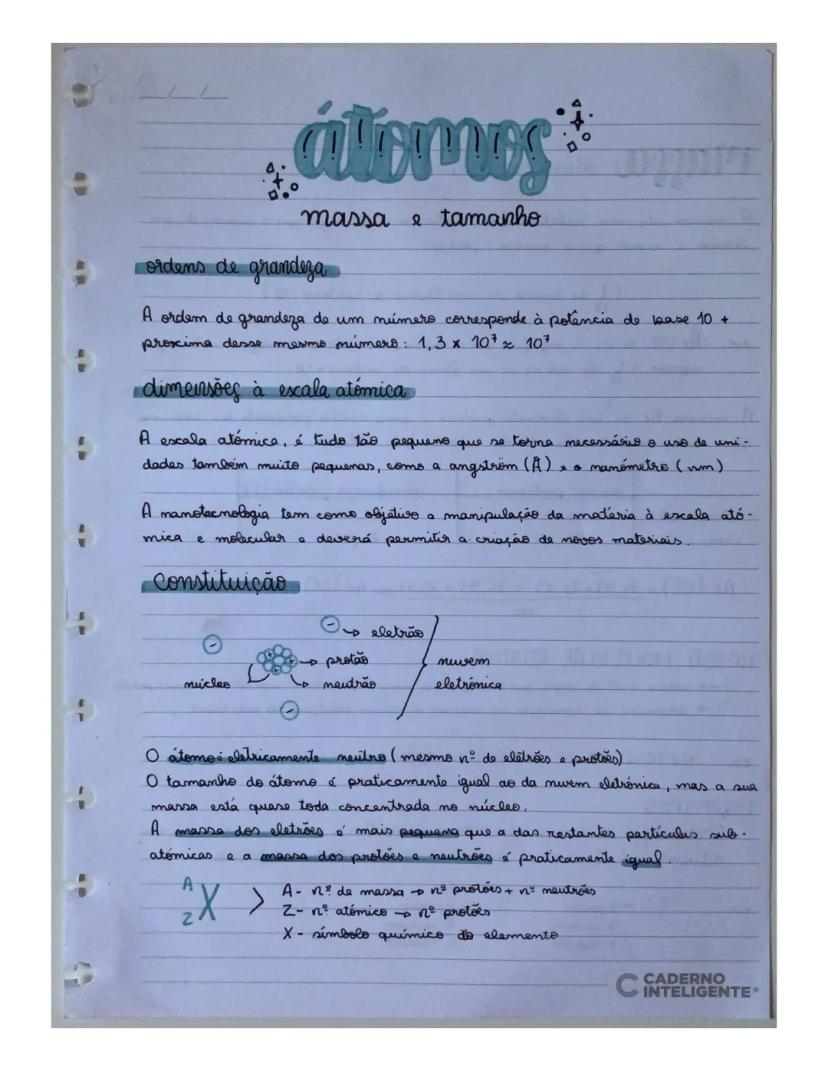 átomos
massa e tamanho
ordens de grandeza
A ordem de grandeza de um número corresponde à potência de base 10 +
proxima desse mesmo número: 1,3 x 10⁷ ≈ 10⁷
dimensões à escala atómica
À escala atómica, é tudo tão pequeno que se torna necessário o uso de uni-
dades também muito pequenas, como a angström (Å) e o nanómetro (nm)
A nanotecnologia tem como objetivo a manipulação da matéria à escala ató-
mica e molecular e deverá permitir a criação de novos materiais.
Constituição
- → eletrão
-
+ + + → protão
núcleo → neutrão
nuvem
eletrónica
-
O átomo é eletricamente neutro (mesmo nº de elétrões e protões)
O tamanho do átomo é praticamente igual ao da nuvem eletrónica, mas a sua
massa está quase toda concentrada no núcleo.
A massa dos eletrões é mais pequena que a das restantes partículas sub-
atómicas e a massa dos protões e neutrões é praticamente igual.
A
Z X > A - nº de massa → nº protões + nº neutrões
Z - nº atómico → nº protões
X - símbolo químico do elemento
C CADERNO
INTELIGENTE®